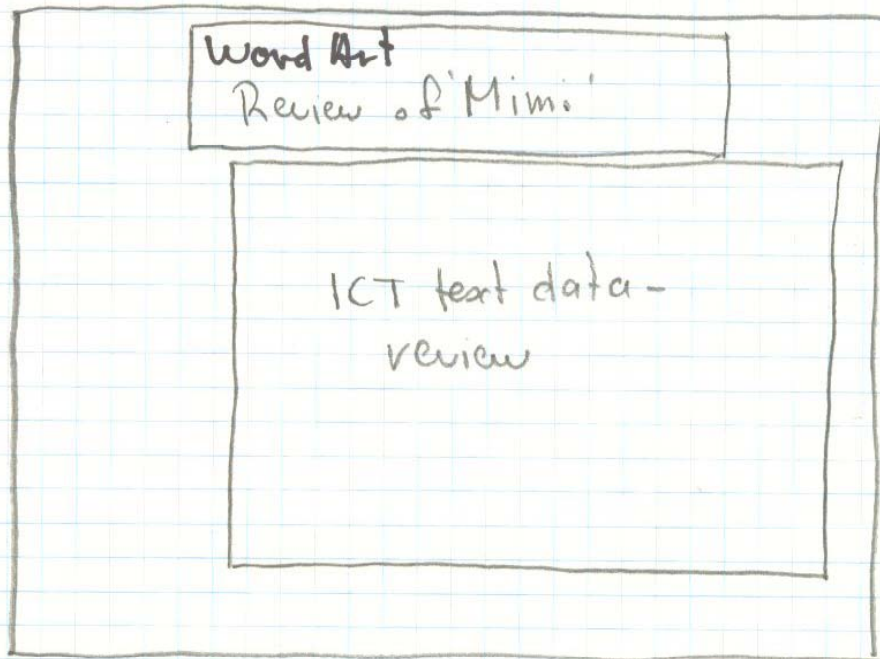 Word Art
Review of 'Mimi'
ICT text data -
review